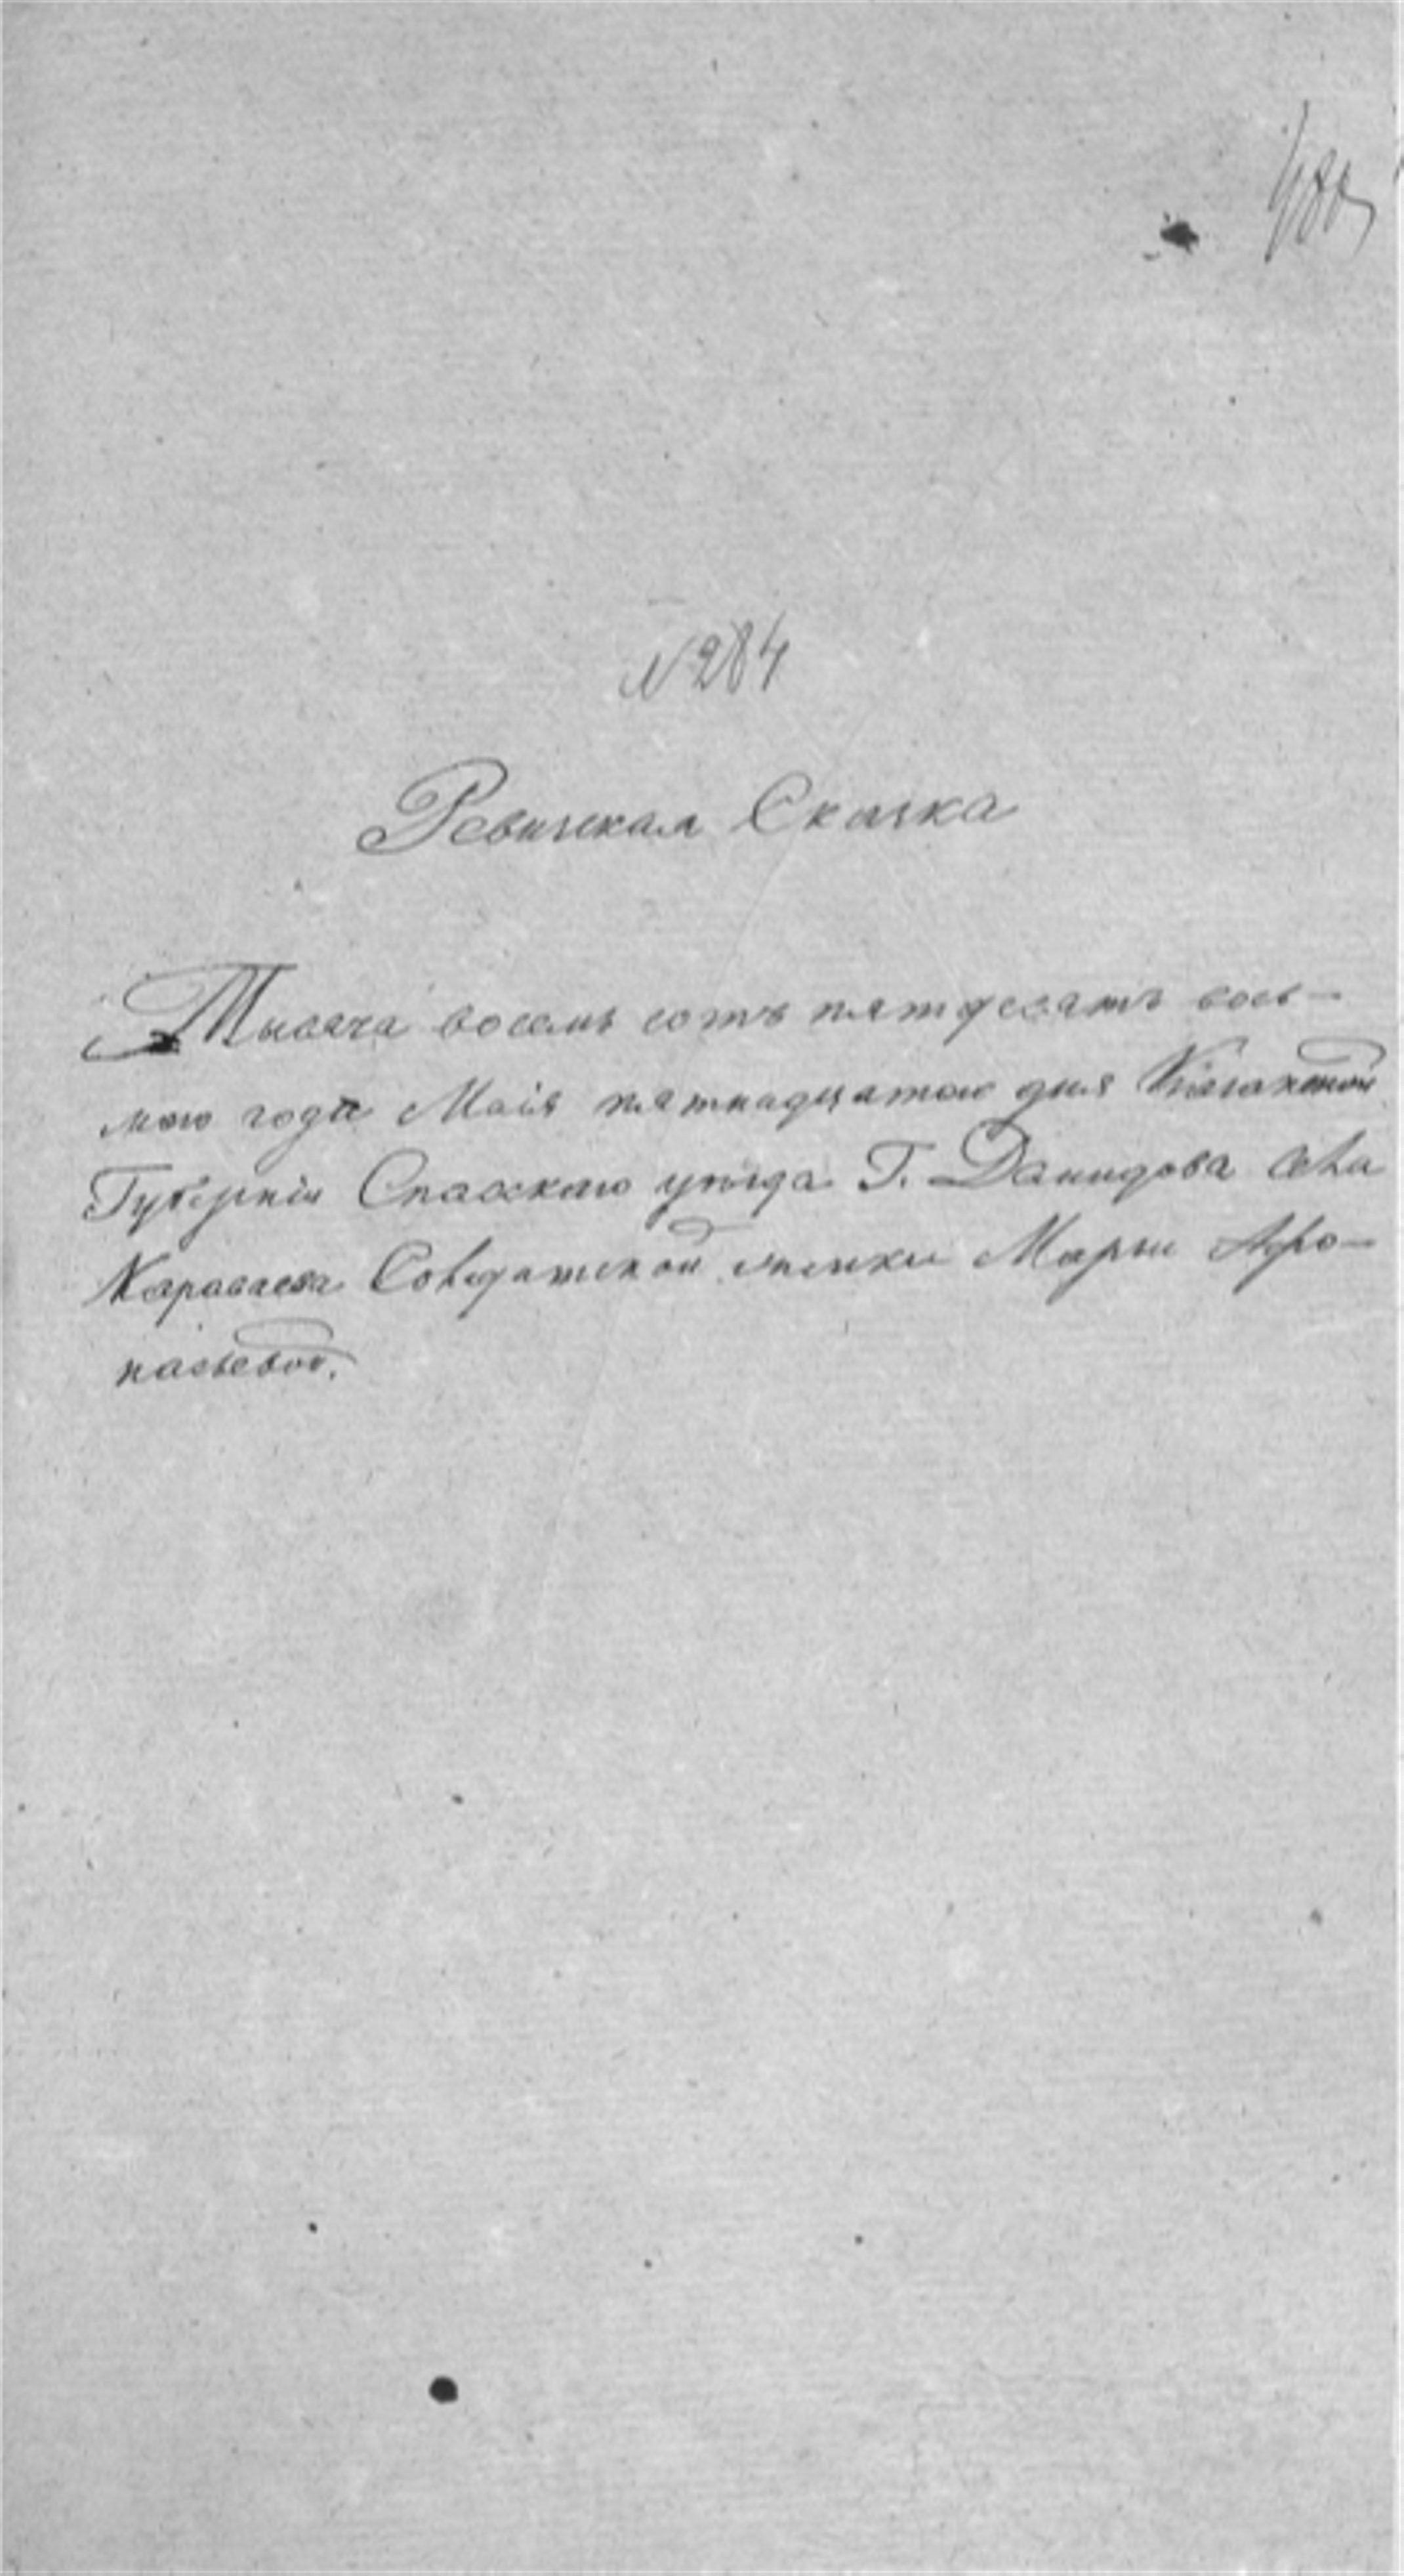 № 284
Ревизская Сказка
Тысяча восемь сотъ пятдесятъ вось-
мого года Маія пятнадцатого дня Казанской
Губерніи Спасскаго уѣзда Г. Давидова села
Караваева Солдатской женки Марьи Афо-
насьевой.